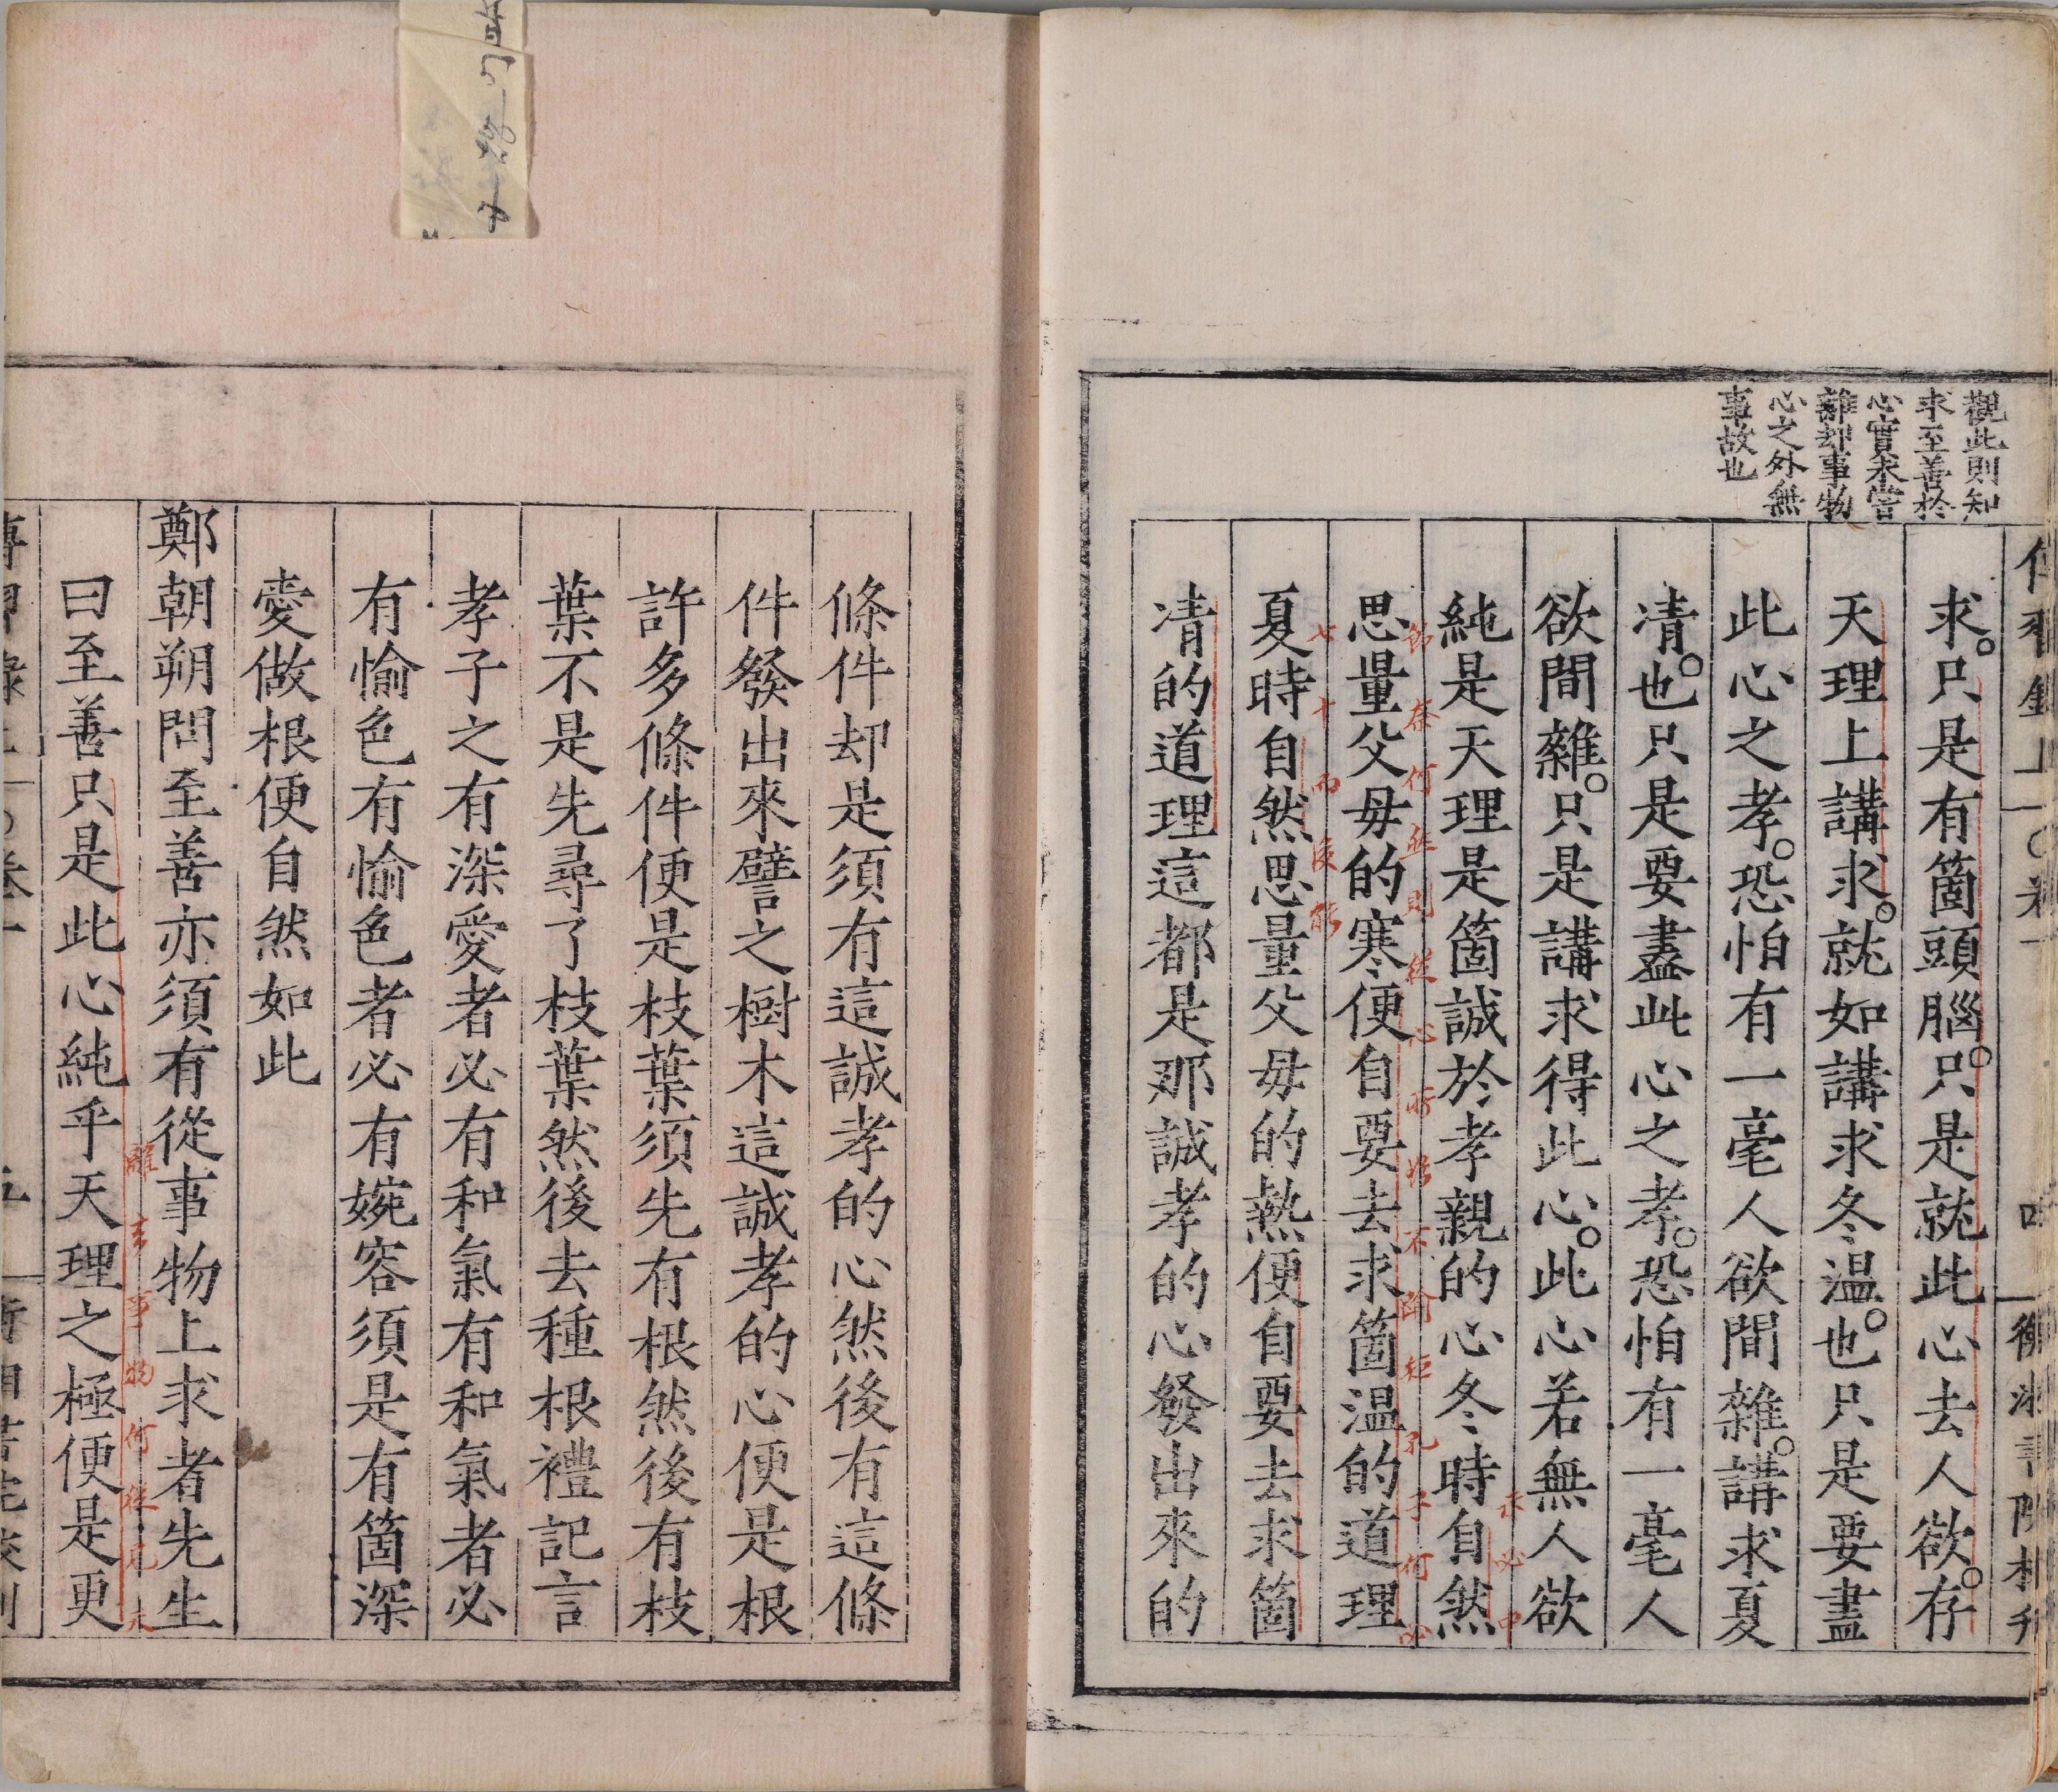 觀此則知
求至善於
心實未嘗
離却事物
心之外無
事故也
求。只是有箇頭腦。只是就此心去人欲。存
天理上講求。就如講求冬溫。也只是要盡
此心之孝。恐怕有一毫人欲間雜。講求夏
凊。也只是要盡此心之孝。恐怕有一毫人
欲間雜。只是講求得此心。此心若無人欲
純是天理是箇誠於孝親的心冬時自然
思量父母的寒便自要去求箇溫的道理
夏時自然思量父母的熱便自要去求箇
凊的道理這都是那誠孝的心發出來的
條件却是須有這誠孝的心然後有這條
件發出來譬之樹木這誠孝的心便是根
許多條件便是枝葉須先有根然後有枝
葉不是先尋了枝葉然後去種根禮記言
孝子之有深愛者必有和氣有和氣者必
有愉色有愉色者必有婉容須是有箇深
愛做根便自然如此
鄭朝朔問至善亦須有從事物上求者先生
曰至善只是此心純乎天理之極便是更